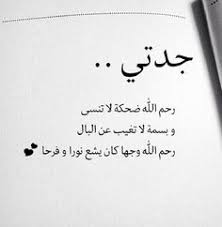 جدتي ..
رحم الله ضحكة لا تنسى
و بسمة لا تغيب عن البال
رحم الله وجها كان يشع نورا و فرحا